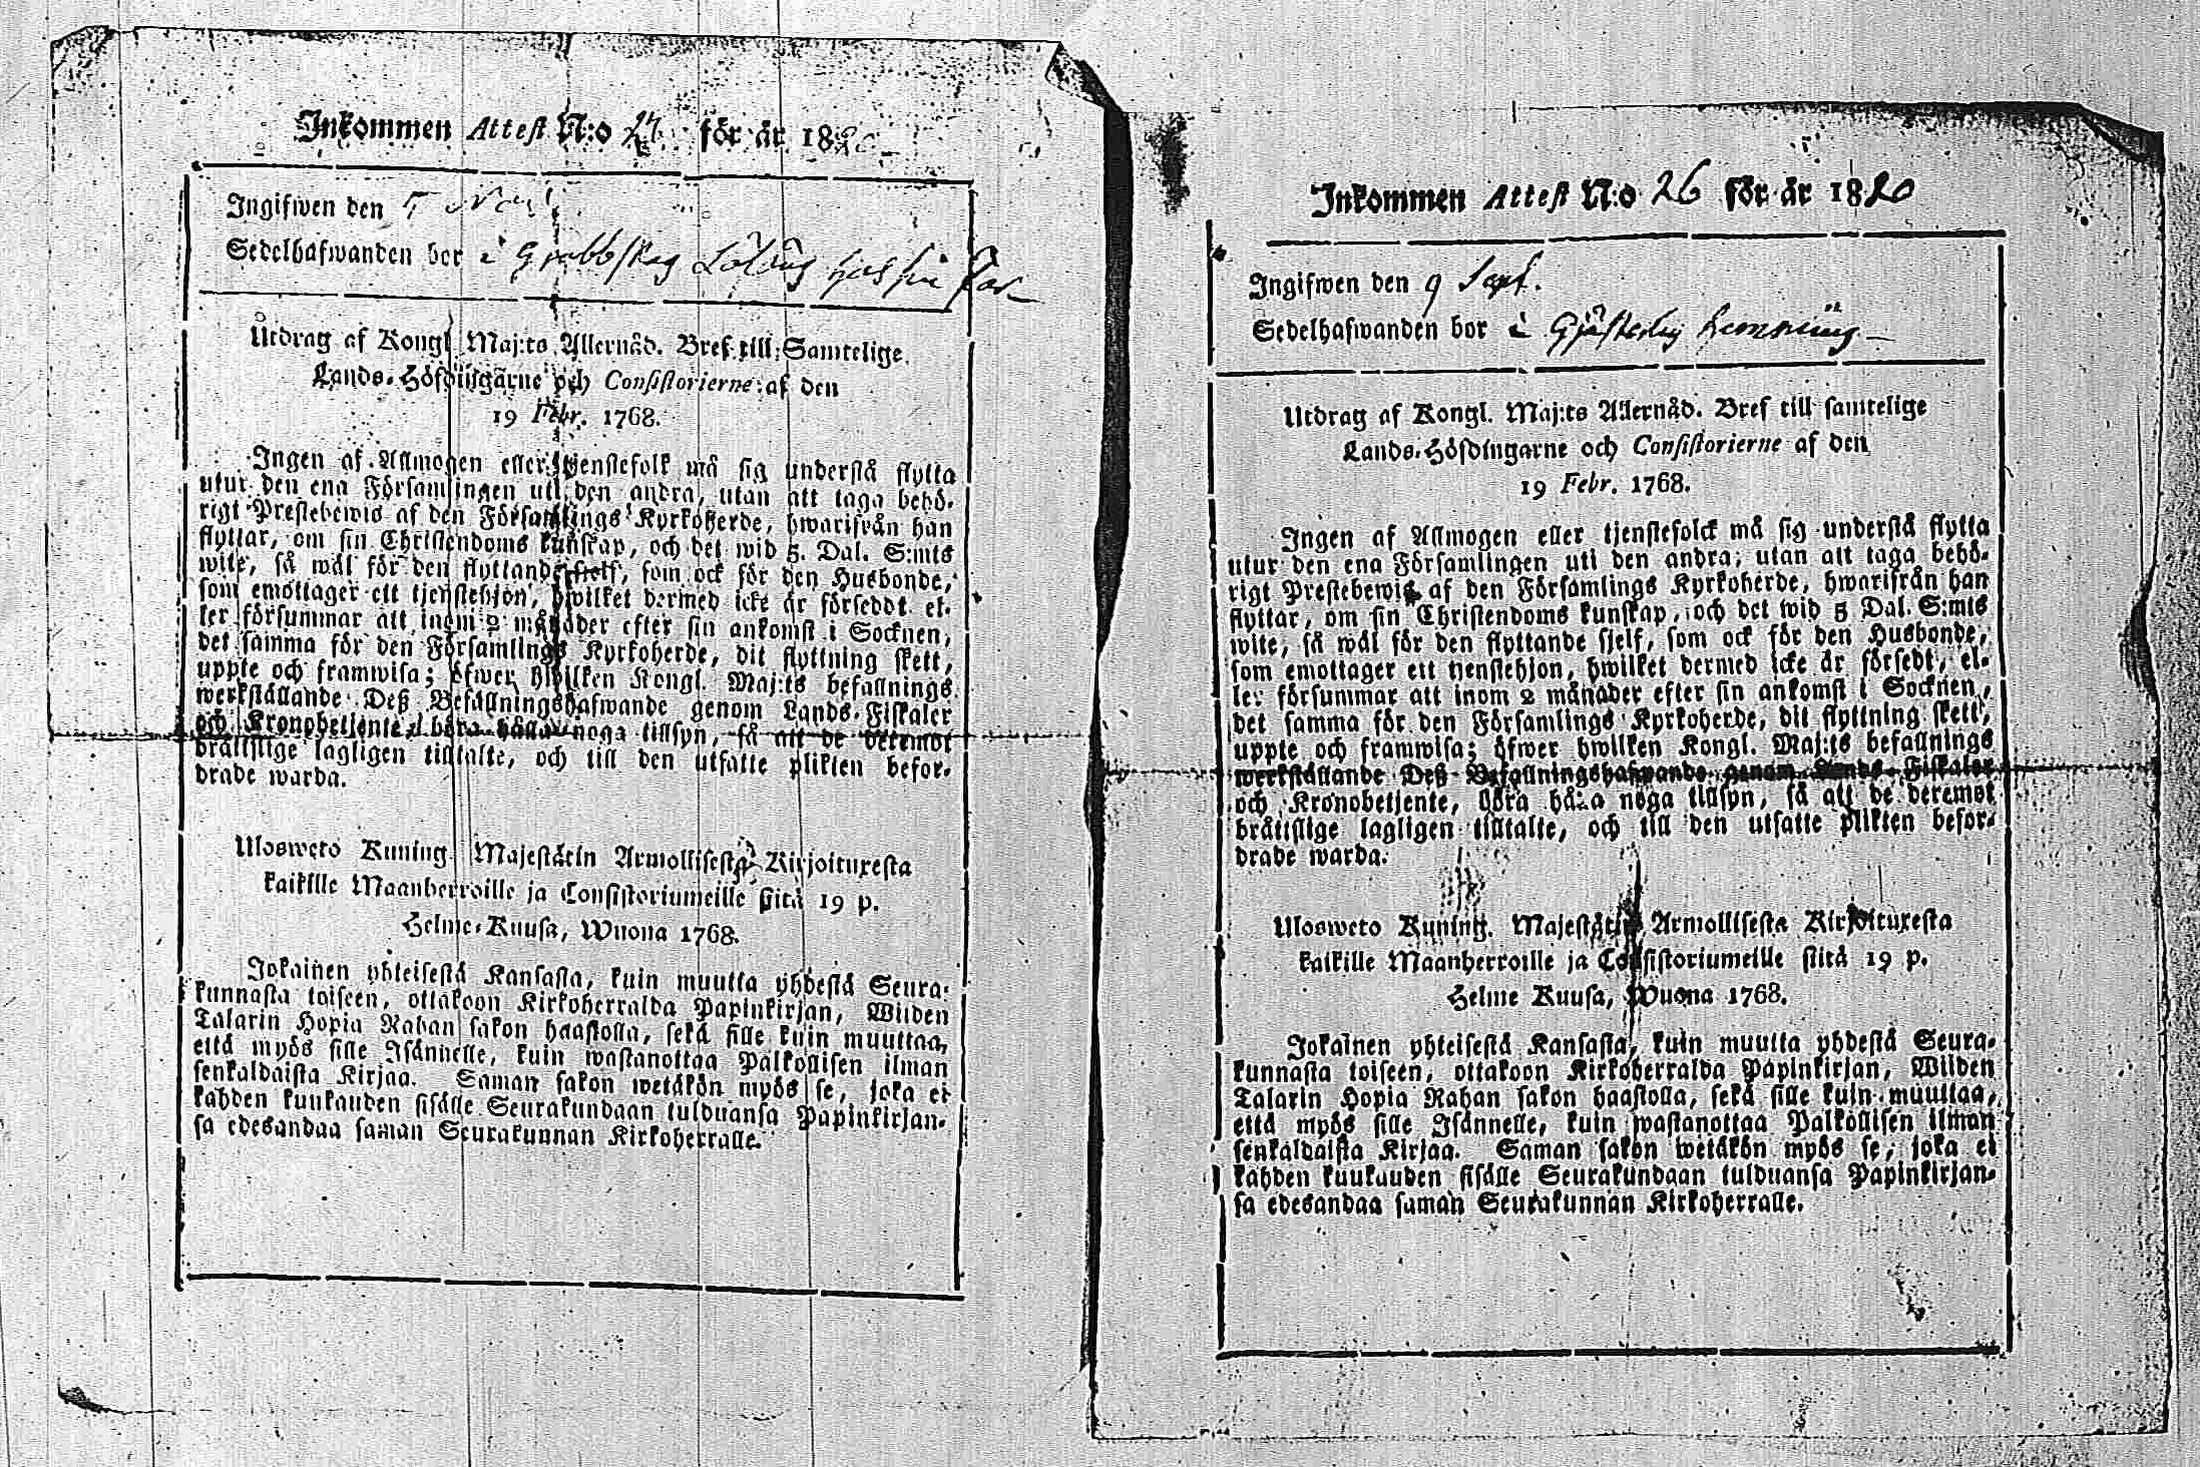 Inkommen Attest N:o 27 för år 1820
Ingifwen den 5 Nov
Sedelhafwanden bor i Grabbskog hos sin Far
Utdrag af Kongl. Maj:ts Allernåd. Bref till Samtelige
Lands-Höfdingarne och Consistorierne af den
19 Febr. 1768.
Ingen af Allmogen eller tjenstefolk må sig understå flytta
utur den ena Församlingen uti den andra, utan att taga behö-
rigt Prestebewis af den Församlings Kyrkoherde, hwarifrån han
flyttar, om sin Christendoms kunskap, och det wid 5. Dal. S:mts
wite, så wäl för den flyttande sielf, som ock för den Husbonde,
som emottager ett tjenstehjon, hwilket dermed icke är förseddt, el-
ler försummar att inom 2 månader efter sin ankomst i Socknen,
det samma för den Församlings Kyrkoherde, dit flyttning skett,
uppte och framwisa; öfwer hwilken Kongl. Maj:ts befallnings
werkställande Deß Befallningshafwande genom Lands-Fiskaler
och Kronobetjente, böra hålla noga tillsyn, så att de deremot
bråttslige lagligen tilltalte, och till den utsatte plikten befor-
drade warda.
Ulosweto Kuning. Majestätin Armollisesta Kirjoituxesta
kaikille Maanherroille ja Consistoriumeille siitä 19 p.
Helme-Kuusa, Wuona 1768.
Jokainen yhteisestä Kansasta, kuin muutta yhdestä Seura-
kunnasta toiseen, ottakoon Kirkoherralda Papinkirjan, Wiiden
Talarin Hopia Rahan sakon haastolla, sekä sille kuin muuttaa,
että myös sille Isännelle, kuin wastanottaa Palkollisen ilman
senkaldaista Kirjaa. Saman sakon wetäkön myös se, joka ei
kahden kuukauden sisälle Seurakundaan tulduansa Papinkirjan-
sa edesandaa saman Seurakunnan Kirkoherralle.
Inkommen Attest N:o 26 för år 1820
Ingifwen den 9 Sept.
Sedelhafwanden bor i Gjästerby
Utdrag af Kongl. Maj:ts Allernåd. Bref till samtelige
Lands-Höfdingarne och Consistorierne af den
19 Febr. 1768.
Ingen af Allmogen eller tjenstefolck må sig understå flytta
utur den ena Församlingen uti den andra, utan att taga behö-
rigt Prestebewis af den Församlings Kyrkoherde, hwarifrån han
flyttar, om sin Christendoms kunskap, och det wid 5 Dal. S:mts
wite, så wäl för den flyttande sjelf, som ock för den Husbonde,
som emottager ett tienstehjon, hwilket dermed icke är försedt, el-
ler försummar att inom 2 månader efter sin ankomst i Socknen,
det samma för den Församlings Kyrkoherde, dit flyttning skett,
uppte och framwisa; öfwer hwilken Kongl. Maj:ts befallnings
werkställande Deß Befallningshafwande genom Lands-Fiskaler
och Kronobetjente, böra hålla noga tillsyn, så att de deremot
bråttslige lagligen tilltalte, och till den utsatte plikten befor-
drade warda.
Ulosweto Kuning. Majestätin Armollisesta Kirjoituxesta
kaikille Maanherroille ja Consistoriumeille siitä 19 p.
Helme Kuusa, Wuona 1768.
Jokainen yhteisestä Kansasta, kuin muutta yhdestä Seura-
kunnasta toiseen, ottakoon Kirkoherralda Papinkirjan, Wiiden
Talarin Hopia Rahan sakon haastolla, sekä sille kuin muuttaa,
että myös sille Isännelle, kuin wastanottaa Palkollisen ilman
senkaldaista Kirjaa. Saman sakon wetäkön myös se, joka ei
kahden kuukauden sisälle Seurakundaan tulduansa Papinkirjan-
sa edesandaa saman Seurakunnan Kirkoherralle.